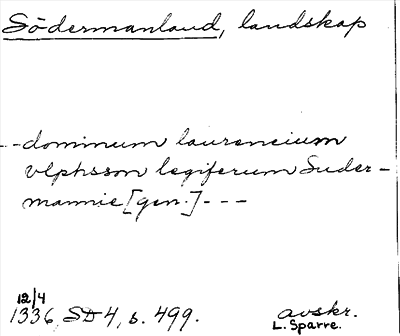 Södermanland, landskap
--dominum laurencium
vlphsson legiferum Suder-
mannie [gen.]---
12/4
1336, SD 4, s. 499.
avskr.
L. Sparre.